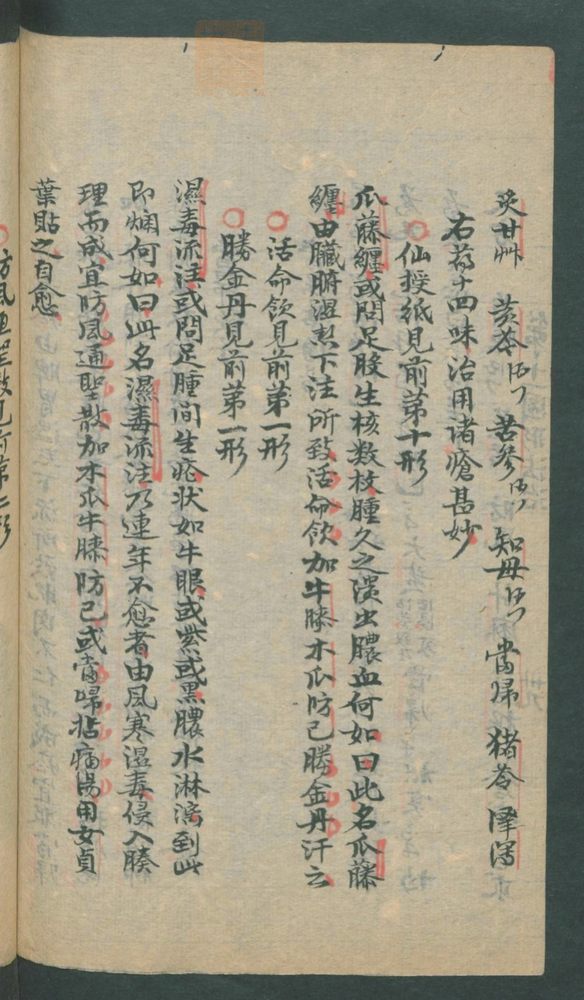 炙甘艸 黃芩 苦參 知母 當歸 猪苓 澤瀉
右葯十四味治用諸瘡甚妙
仙授紙見前第十形
瓜藤纏或問足股生核数枚腫久之潰出膿血何如曰此名瓜藤
纏由臟腑濕热下注所致活命飲加牛膝木瓜防己勝金丹汗之
活命飲見前第一形
勝金丹見前第一形
濕毒流注或問足腫間生瘡状如牛眼或紫或黑膿水淋漓到此
即爛何如曰此名濕毒流注乃連年不愈者由風寒濕毒侵入腠
理而成宜防風通聖散加木瓜牛膝防己或當歸拈痛湯用女貞
葉貼之自愈